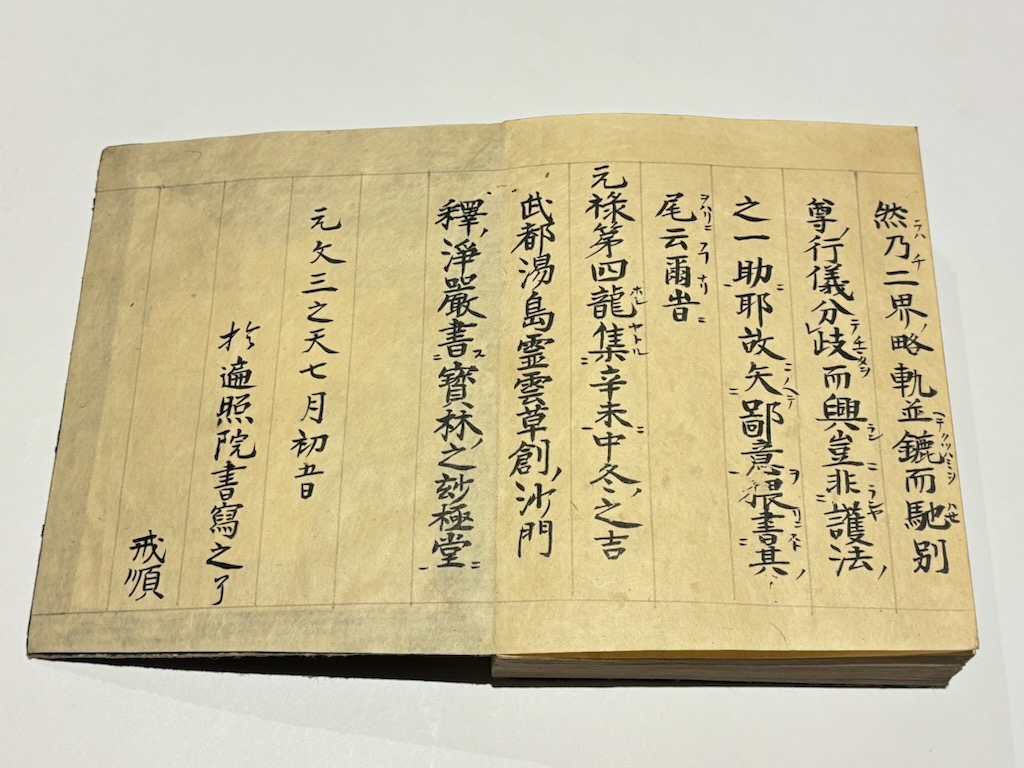 然乃二界略軌並鑣而馳別
尊行儀分歧而興豈非護法
之一助耶故矢鄙意書其
尾云爾旹
元禄第四龍集辛未中冬之吉
武都湯島霊雲草創沙門
釋淨嚴書寶林之玅極堂
元文三之天七月初五日
於遍照院書寫之了
戒順